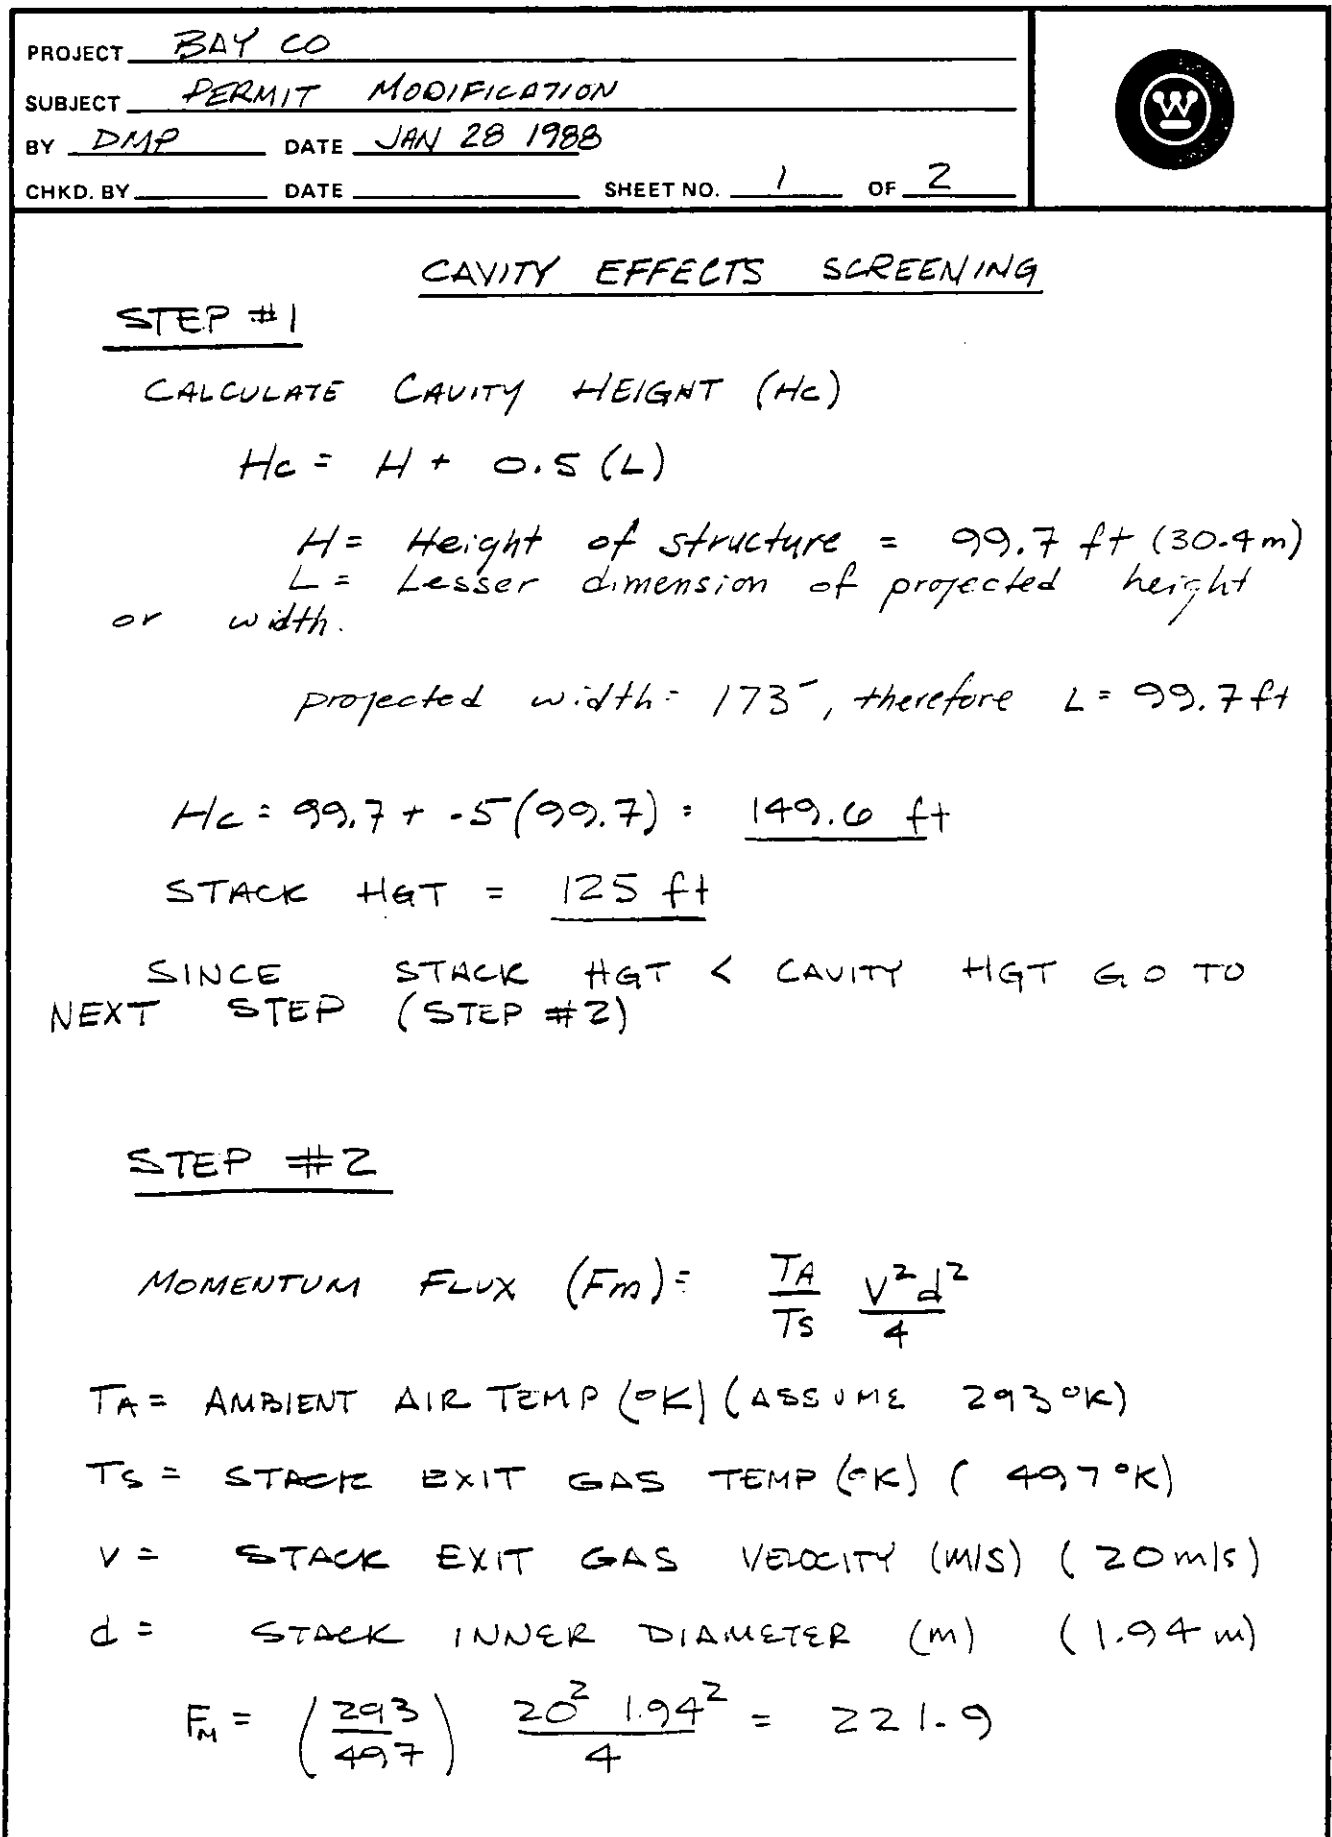 PROJECT BAY CO
SUBJECT PERMIT MODIFICATION
BY DMP DATE JAN 28 1988
CHKD. BY DATE SHEET NO. 1 OF 2
W
CAVITY EFFECTS SCREENING
STEP #1
CALCULATE CAVITY HEIGHT (Hc)
Hc = H + 0.5 (L)
H = Height of structure = 99.7 ft (30.4m)
L = Lesser dimension of projected height
or width.
projected width = 173', therefore L = 99.7 ft
Hc = 99.7 + .5(99.7) = 149.6 ft
STACK HGT = 125 ft
SINCE STACK HGT < CAVITY HGT GO TO
NEXT STEP (STEP #2)
STEP #2
MOMENTUM FLUX (Fm) = TA/TS V²d²/4
TA = AMBIENT AIR TEMP (°K) (ASSUME 293°K)
TS = STACK EXIT GAS TEMP (°K) (497°K)
V = STACK EXIT GAS VELOCITY (M/S) (20m/s)
d = STACK INNER DIAMETER (m) (1.94 m)
FM = (293/497) 20² 1.94²/4 = 221.9